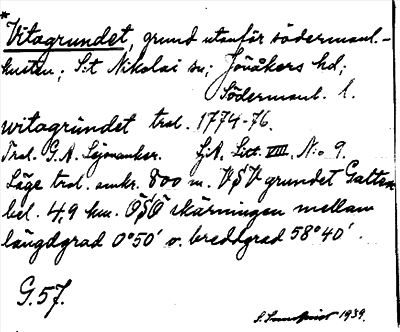 *Vitagrundet, grund utanför södermanl.-
kusten; S:t Nikolai sn; Jönåkers hd;
Södermanl. l.
witagrundet tral. 1774-76.
Tral. G.A. Lejonanker. LA. Litt. VIII. No 9.
Läge tral. omkr. 800 m. VSV grundet Gatten
bel. 4,9 km. OSO skärningen mellan
längdgrad 0°50' o. breddgrad 58°40'.
G.57.
S. 1939.